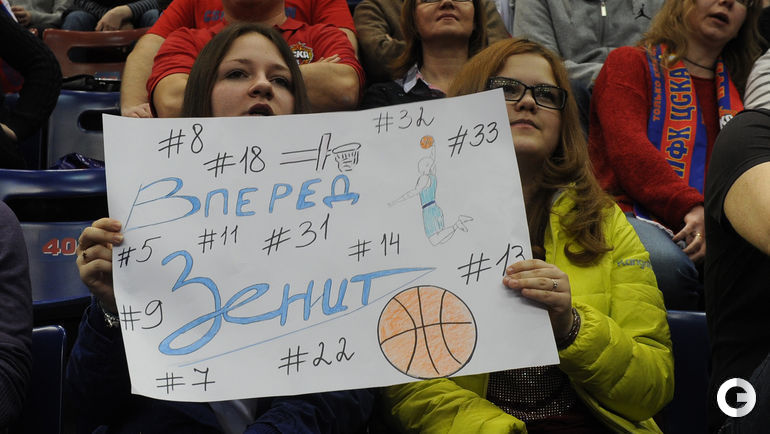 #8 #18 #32 #33
ВПЕРЕД
#5 #11 #31 #14 #13
Зенит
#9
#7 #22
40
ТОЛЬКО ЦСКА
ПФК ЦСКА